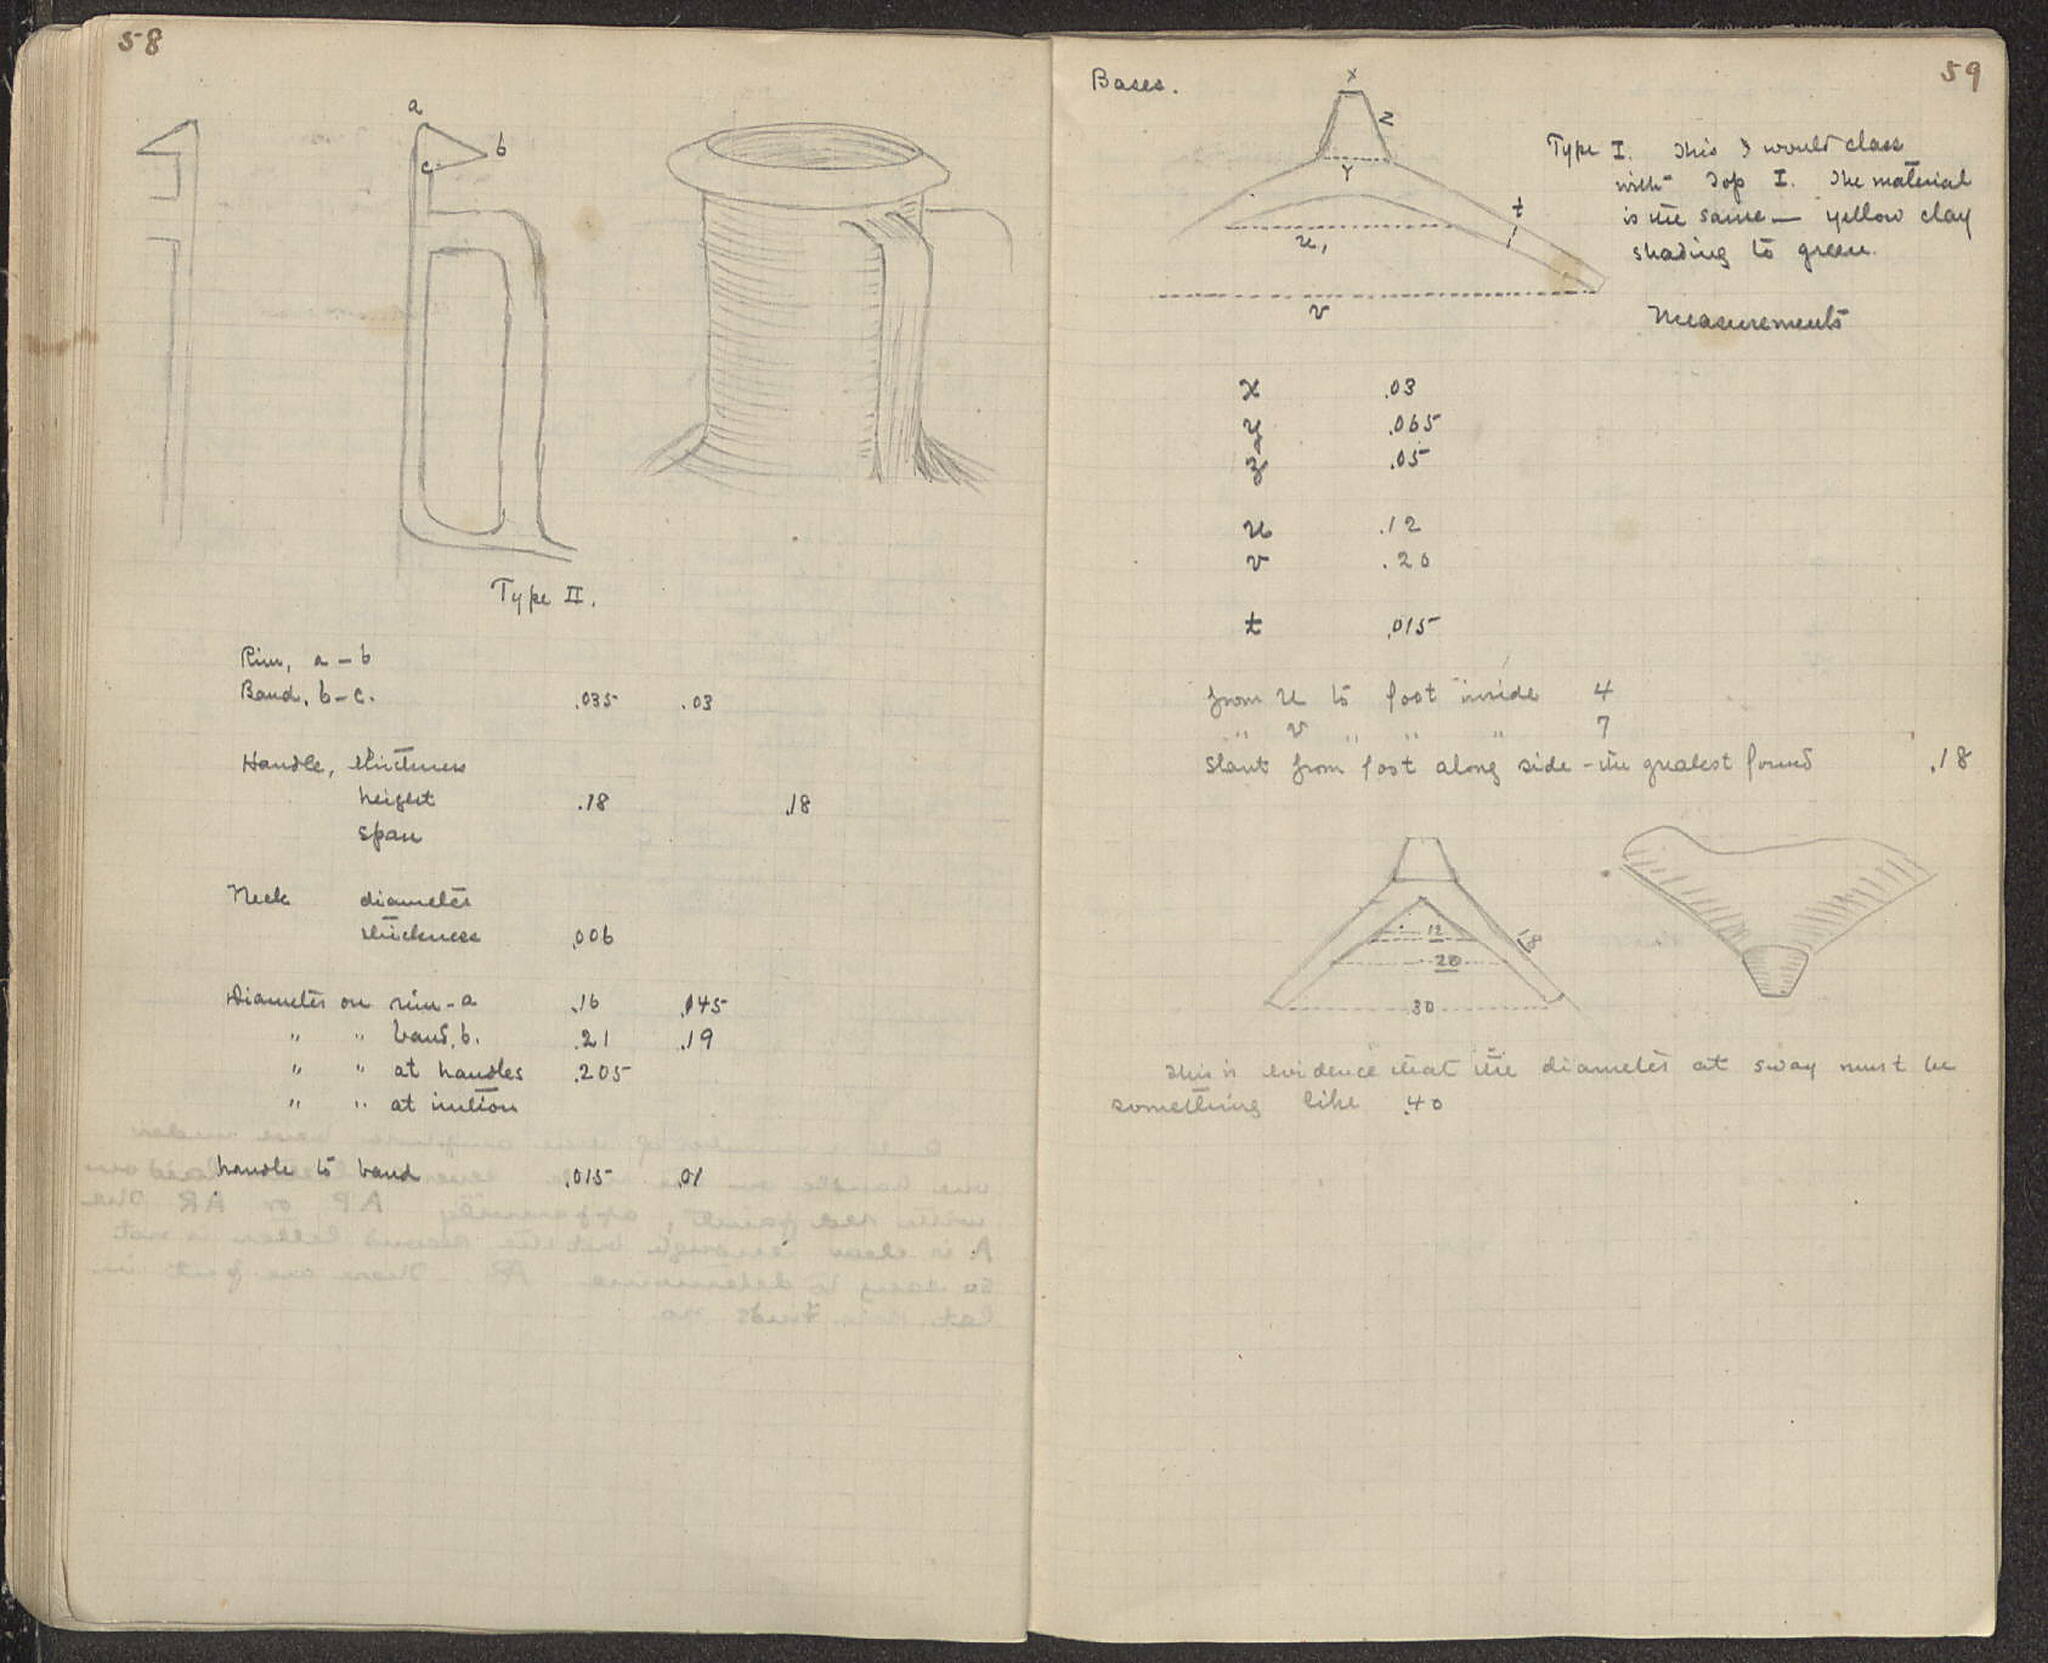 58
a
b
c
Type II.
Rim, a - b
Band, b - c. .035 .03
Handle, thickness
height .18 .18
span
Neck diameter
thickness .006
Diameter on rim - a .16 .145
" " band, b. .21 .19
" " at handles .205
" "  at
handle to band .015 .01
59
Bases.
x
z
y
t
u,
v
Type I. This I would class
with Top I. The material
is the same — yellow clay
shading to green.
Measurements
x .03
y .065
z .05
u .12
v .20
t .015
from u to foot inside 4
" v " " " 7
Slant from foot along side - the greatest found .18
12
20
30
18
This is evidence that the diameter at sway must be
something like .40